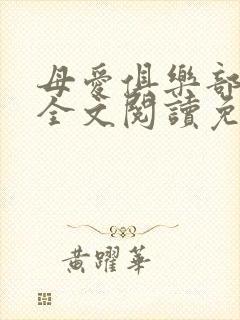 母愛俱樂部
全文閱讀免
黃躍華